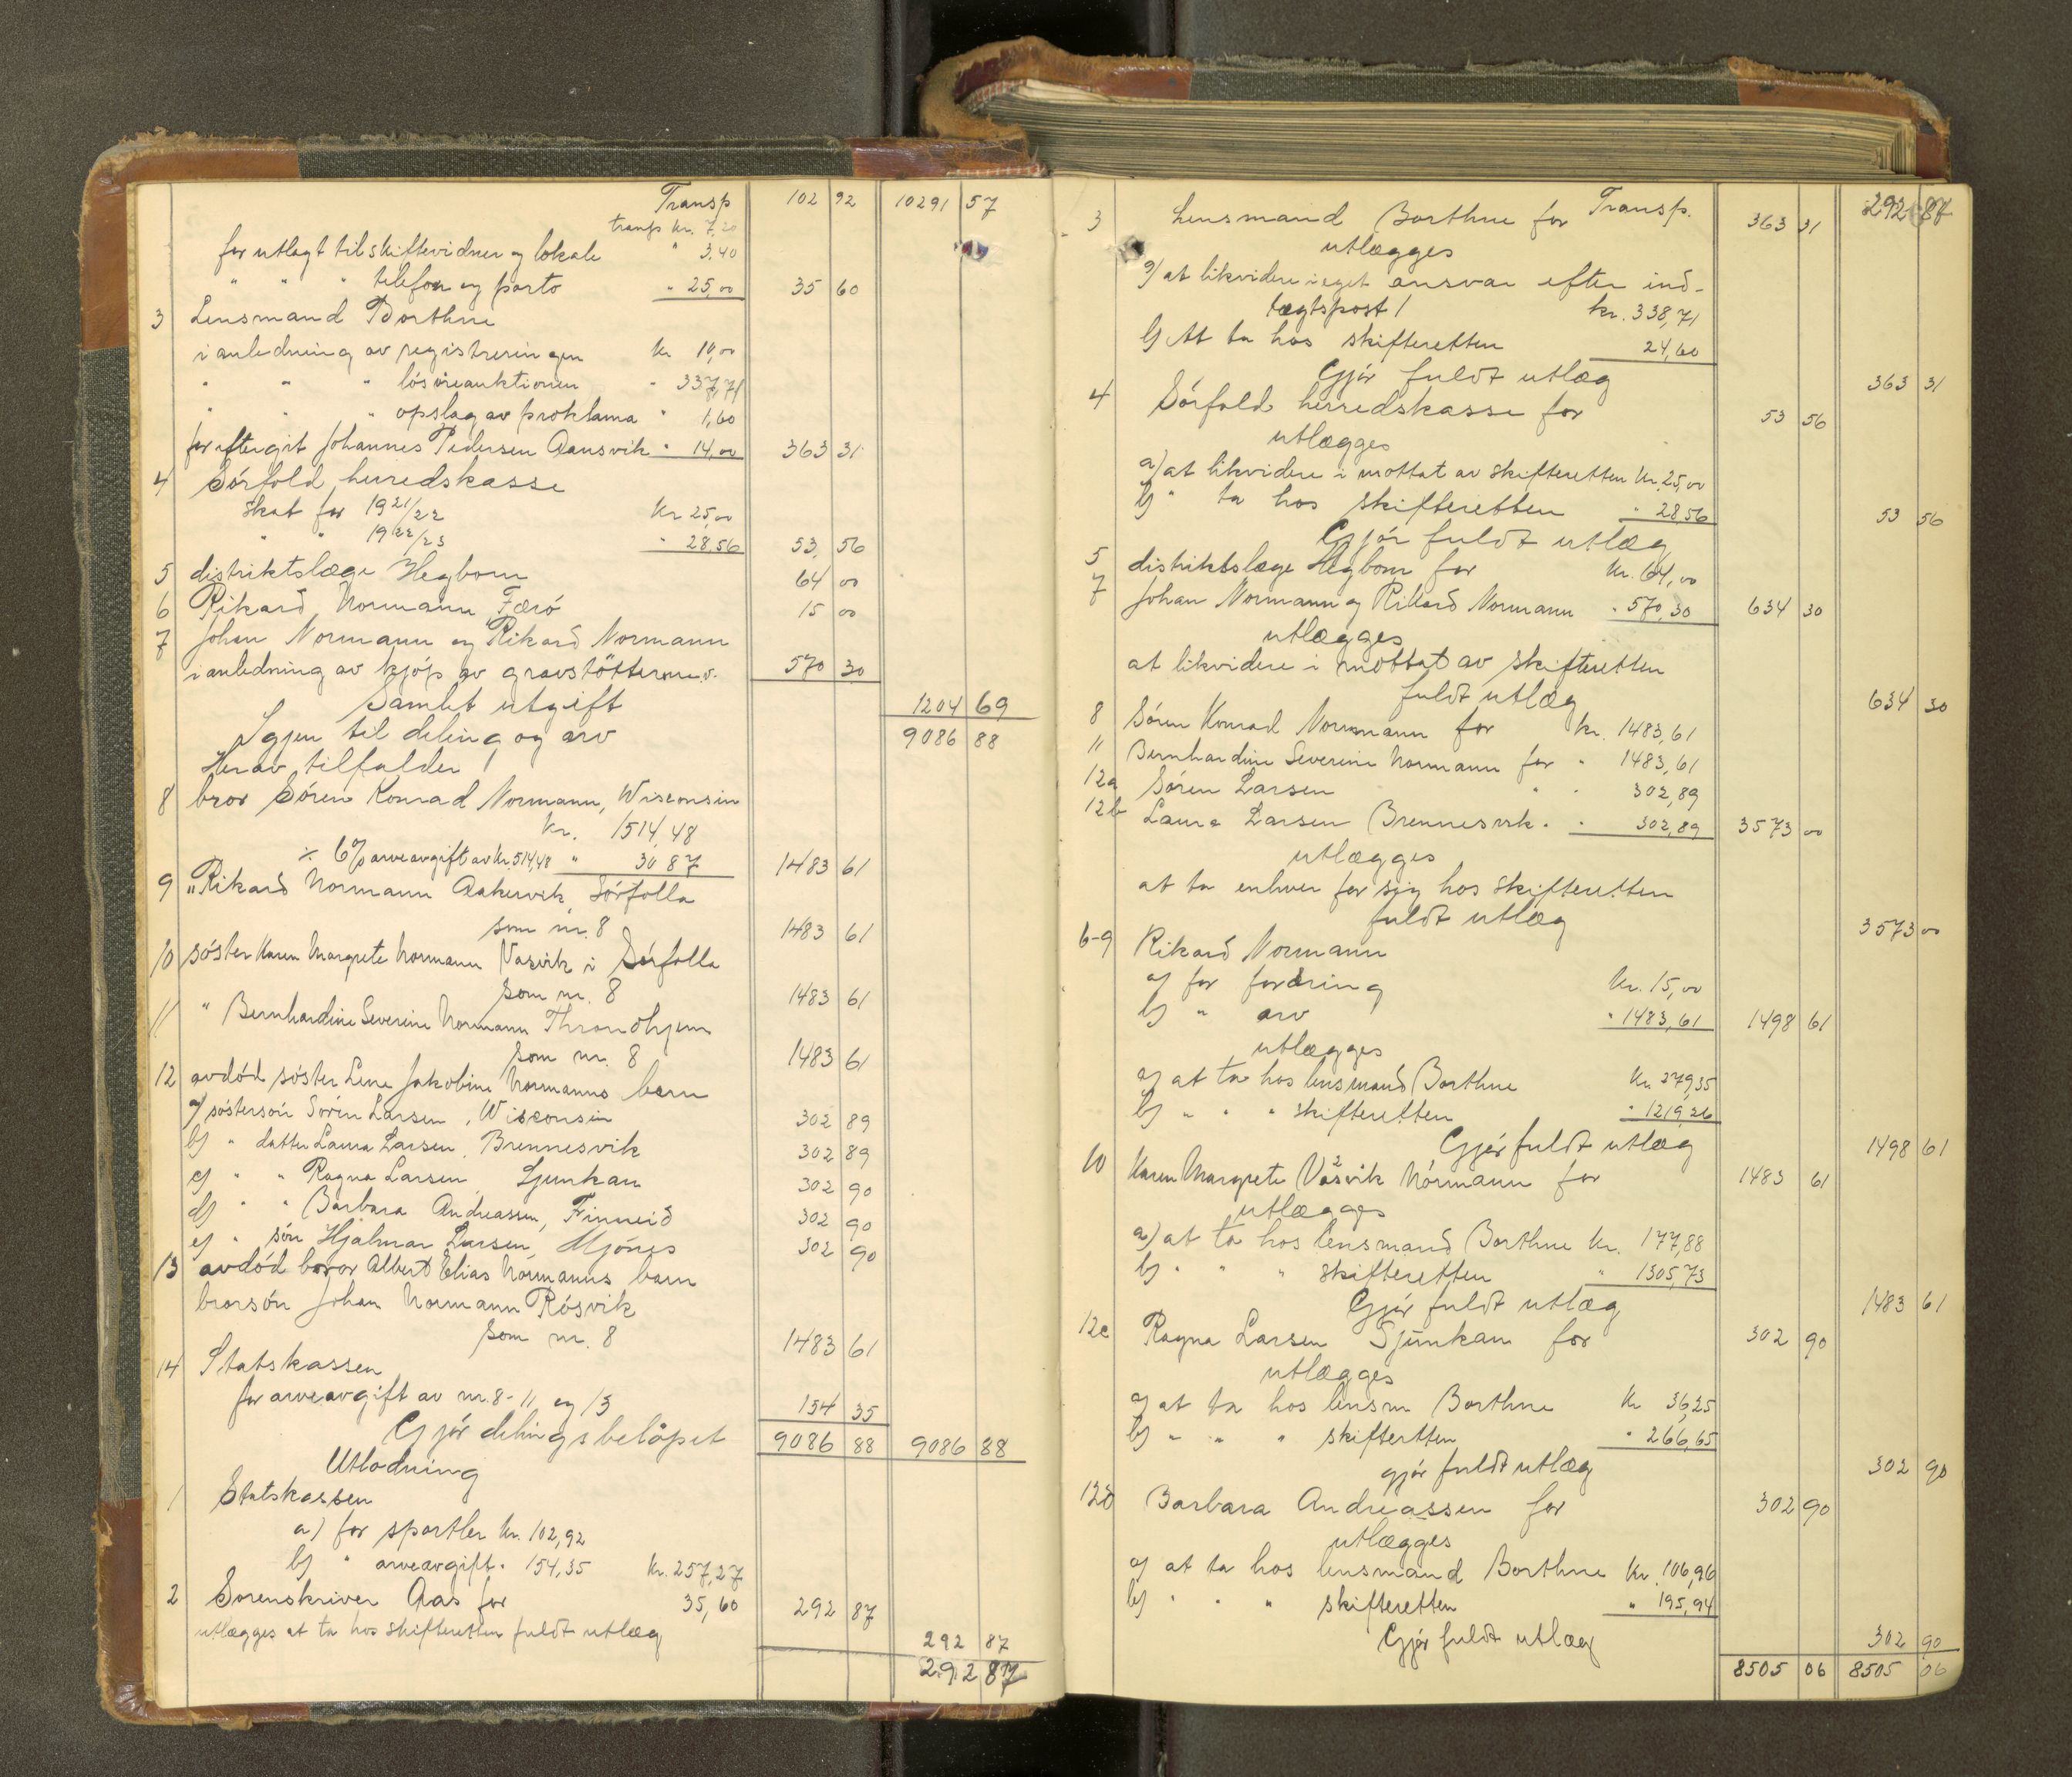 Transp 102 92 10291 57
transp kr. 7.20
for utlagt til skiftevidner og lokale " 3.40
" " " telefon og porto " 25,00 35 60
3 Lensmand Borthne
i anledning av registreringen kr 10,00
" " " lösöreauktionen " 337,71
" " " opslag av proklama " 1,60
for eftergit Johannes Pedersen Aansvik " 14,00 363 31
4 Sörfold herredskasse
Skat for 1921/22 kr 25,00
" " 1922/23 " 28,56 53, 56
5 distriktslæge Hegbom 64 00
6 Rikard Normann, Færö 15 00
7 Johan Normann og Rikard Normann
i anledning av kjöp av gravstötter m.v. 570 30
Samlet utgift 1204 69
Igjen til deling og arv 9086 88
Herav tilfalder
8 bror Sören Konrad Normann, Wisconsin
kr. 1514,48
÷ 6% arveavgift av kr. 514,48 " 30 87 1483 61
9 " Rikard Normann Aakervik, Sörfolla
som nr. 8 1483 61
10 söster Karen Margrete Normann Vasvik i Sörfolla
som nr. 8 1483 61
11 " Bernhardine Severine Normann Throndhjem
som nr. 8 1483 61
12 avdöd söster Lene Jakobine Normanns barn
a) söstersön Sören Larsen, Wisconsin 302 89
b) " datter Laura Larsen, Brennesvik 302 89
c) " " Ragna Larsen Sjunkan 302 90
d) " " Barbara Andreassen, Finneid 302 90
e) " sön Hjalmar Larsen, Mjönes 302 90
13 avdöd bror Albert Elias Normanns barn
brorsön Johan Normann Rösvik
som nr. 8 1483 61
14 Statskassen
for arveavgift av nr. 8-11 og 13 154 35
Gjör delingsbelöpet 9086 88 9086 88
Utlodning
1 Statskassen
a) for sportler kr. 102,92
b) " arveavgift " 154,35 kr. 257,27
2 Sorenskriver Aas for 35,60 292 87
utlægges at ta hos skifteretten fuldt utlæg 292 87
292 87
Transp. 292 87
3 Lensmand Borthne for 363 31
utlægges
a) at likvidere i eget ansvar efter ind-
tægtspost 1 kr. 338,71
b) At ta hos skifteretten 24,60
Gjör fuldt utlæg 363 31
4 Sörfold herredskasse for 53 56
utlægges
a) at likvidere i mottat av skifteretten kr. 25,00
b) " ta hos skifteretten " 28 56
Gjör fuldt utlæg 53 56
5 distriktslæge Hegbom for kr. 64,00
7 Johan Normann og Rikard Normann " 570,30 634 30
utlægges
at likvidere i mottat av skifteretten
fuldt utlæg 634 30
8 Sören Konrad Normann for kr. 1483,61
11 Bernhardine Severine Normann for " 1483,61
12a Sören Larsen " " 302,89
12b Laura Larsen Brennesvik " " 302,89 3573 00
utlægges
at ta enhver for sig hos skifteretten
fuldt utlæg 3573 00
6-9 Rikard Normann
a) for fordring kr. 15,00
b) " arv " 1483,61 1498 61
utlægges
a) at ta hos lensmand Borthne kr. 279,35
b) " " " skifteretten " 1219,26
Gjör fuldt utlæg 1498 61
10 Karen Margrete Vasvik Normann for 1483 61
utlægges
a) at ta hos lensmand Borthne kr. 177,88
b) " " " skifteretten " 1305,73
Gjör fuldt utlæg 1483 61
12c Ragna Larsen Sjunkan for 302 90
utlægges
a) at ta hos lensm Borthne kr 36,25
b) " " " skifteretten " 266,65
gjör fuldt utlæg 302 90
12d Barbara Andreassen for 302 90
utlægges
a) at ta hos lensmand Borthne kr. 106,96
b) " " " skifteretten " 195,94
Gjör fuldt utlæg 302 90
8505 06 8505 06